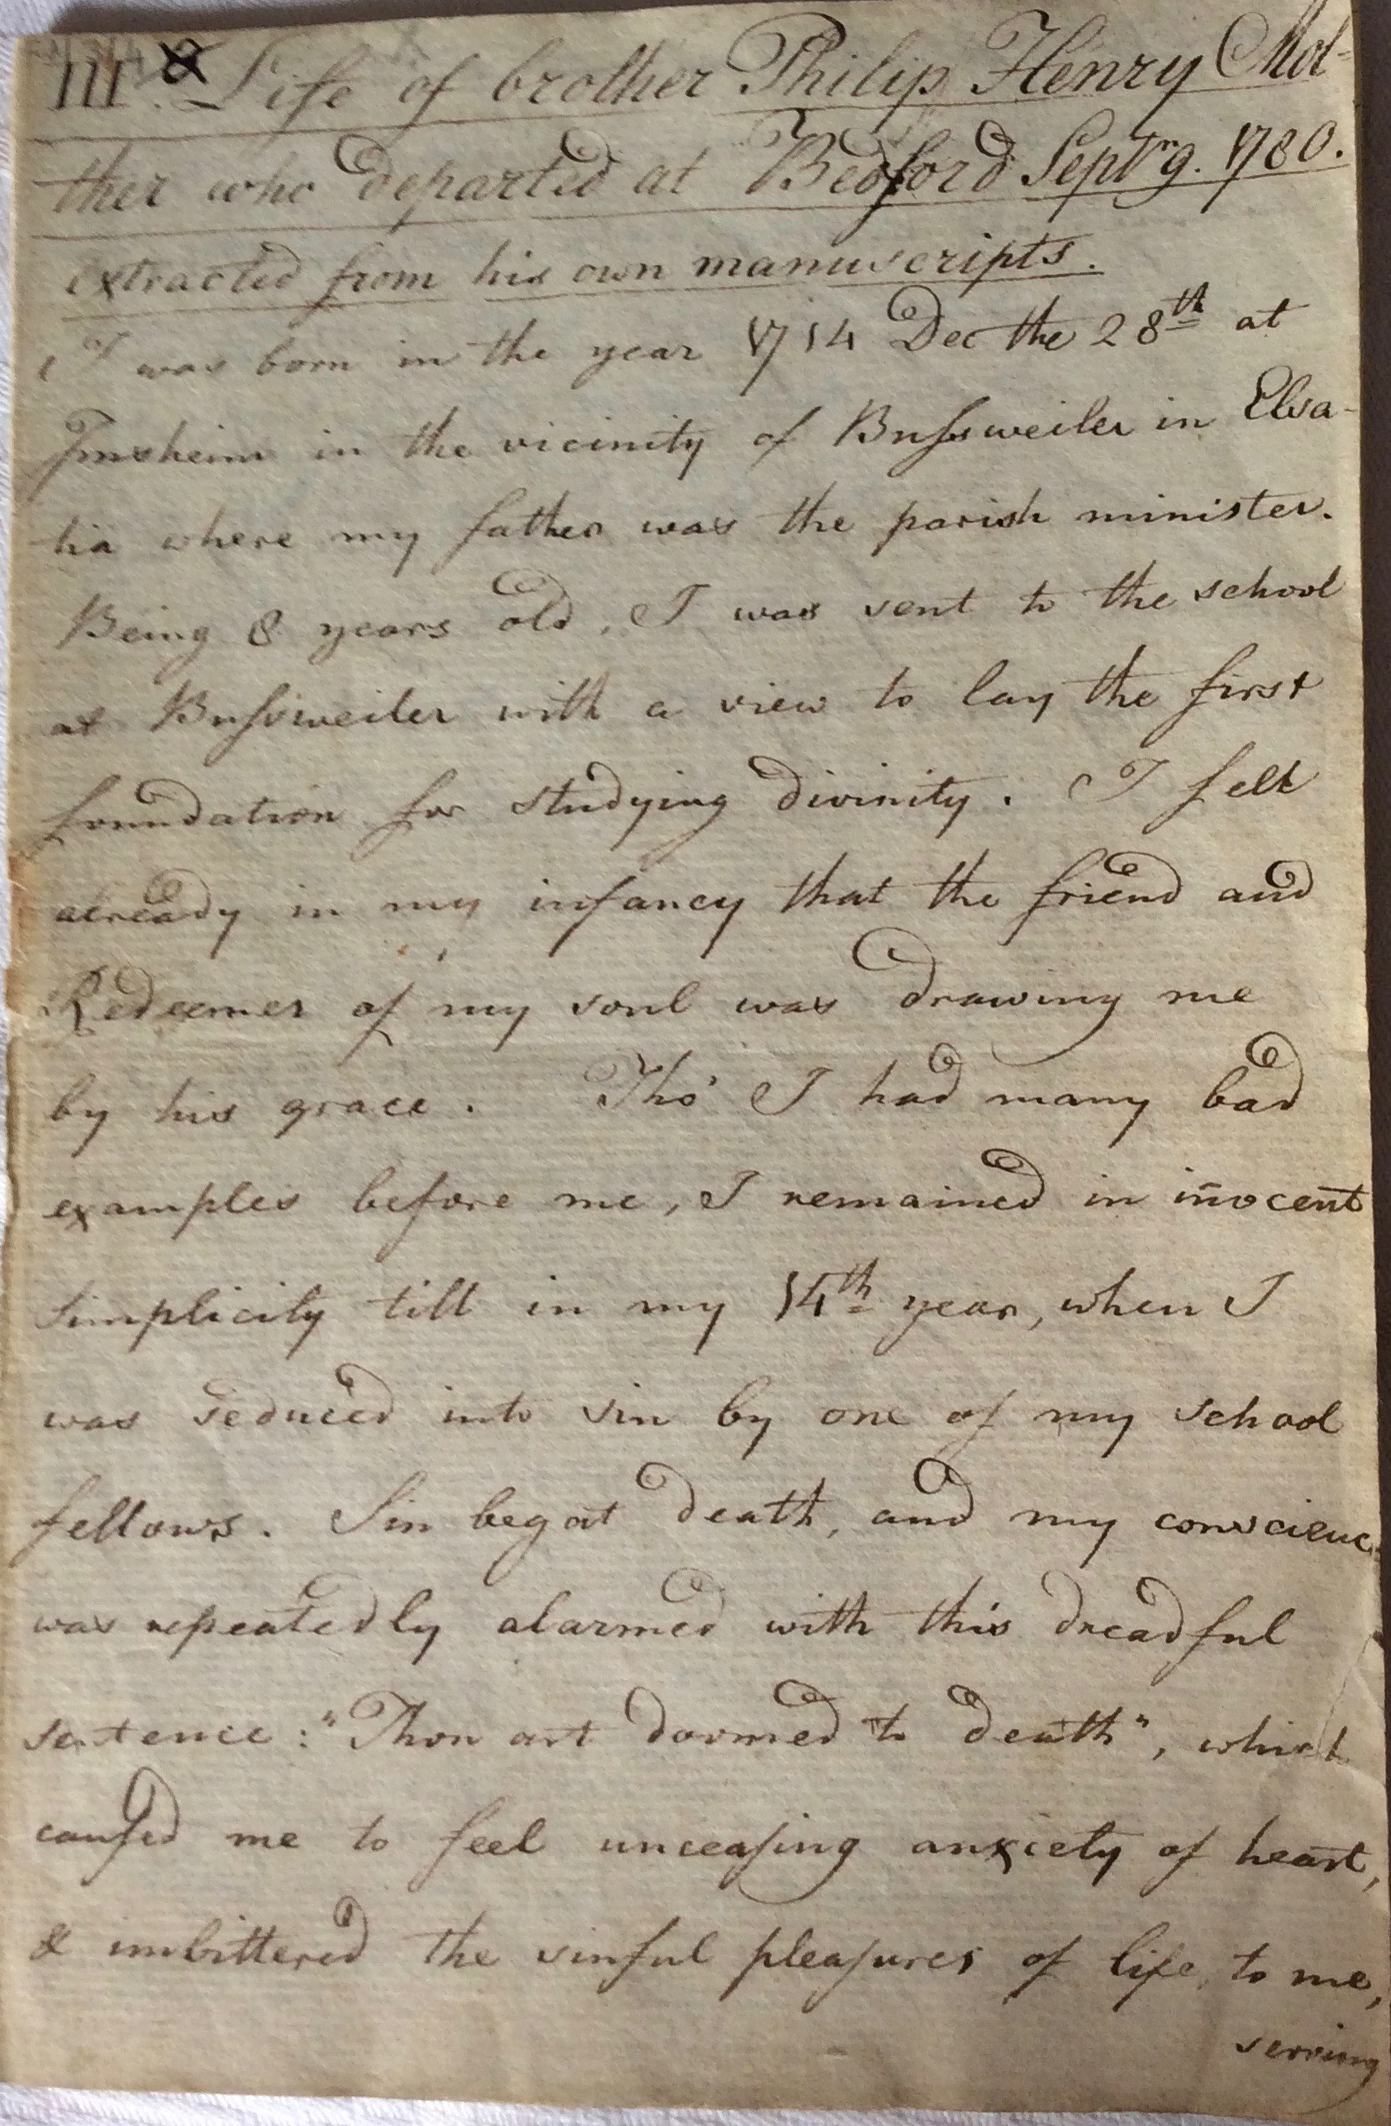 III. Life of brother Philip Henry Mol-
ther who departed at Bedford Septr 9. 1780.
extracted from his own manuscripts.
I was born in the year 1714 Dec the 28th at
Imsheim in the vicinity of Bussweiler in Elsa-
tia where my father was the parish minister.
Being 8 years old, I was sent to the school
at Bussweiler with a view to lay the first
foundation for studying divinity. I felt
already in my infancy that the friend and
Redeemer of my soul was drawing me
by his grace. Tho' I had many bad
examples before me, I remained in iñocent
simplicity till in my 14th year, when I
was seduced into sin by one of my school
fellows. Sin begat death, and my conscienc
was repeatedly alarmed with this dreadful
sentence: "Thou art doomed to death", which
caused me to feel unceasing anxiety of heart,
& imbittered the sinful pleasures of life to me,
serving